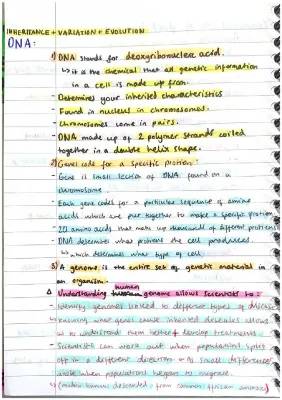 INHERITANCE + VARIATION + EVOLUTION
DNA:
1) DNA stands for deoxyribonucleic acid.
↳ it is the chemical that all genetic information
in a cell is made up from.
- Determines your inherited characteristics
- Found in nucleus in chromosomes.
- Chromosomes come in pairs.
- DNA made up of 2 polymer strands coiled
together in a double helix shape.
2) Genes code for a specific protien:
- Gene is small section of DNA found on a
chromosome
- Each gene codes for a particular sequence of amino
acids which are put together to make a specific protien
- 20 amino acids that make up thousands of different protiens
- DNA determines what protiens the cell produces
↳ which determines what type of cell
3) A genome is the entire set of genetic material in
an organism.
Understanding human genome allows scientists to:
- identify genomes linked to different types of disease
- knowing what genes cause inherited diseases allows
us to understand them better + develop treatments
- Scientists can work out when populations split
off in a different direction as small differences
arose when populations began to migrate.
(modern humans descended from common african ancestor)